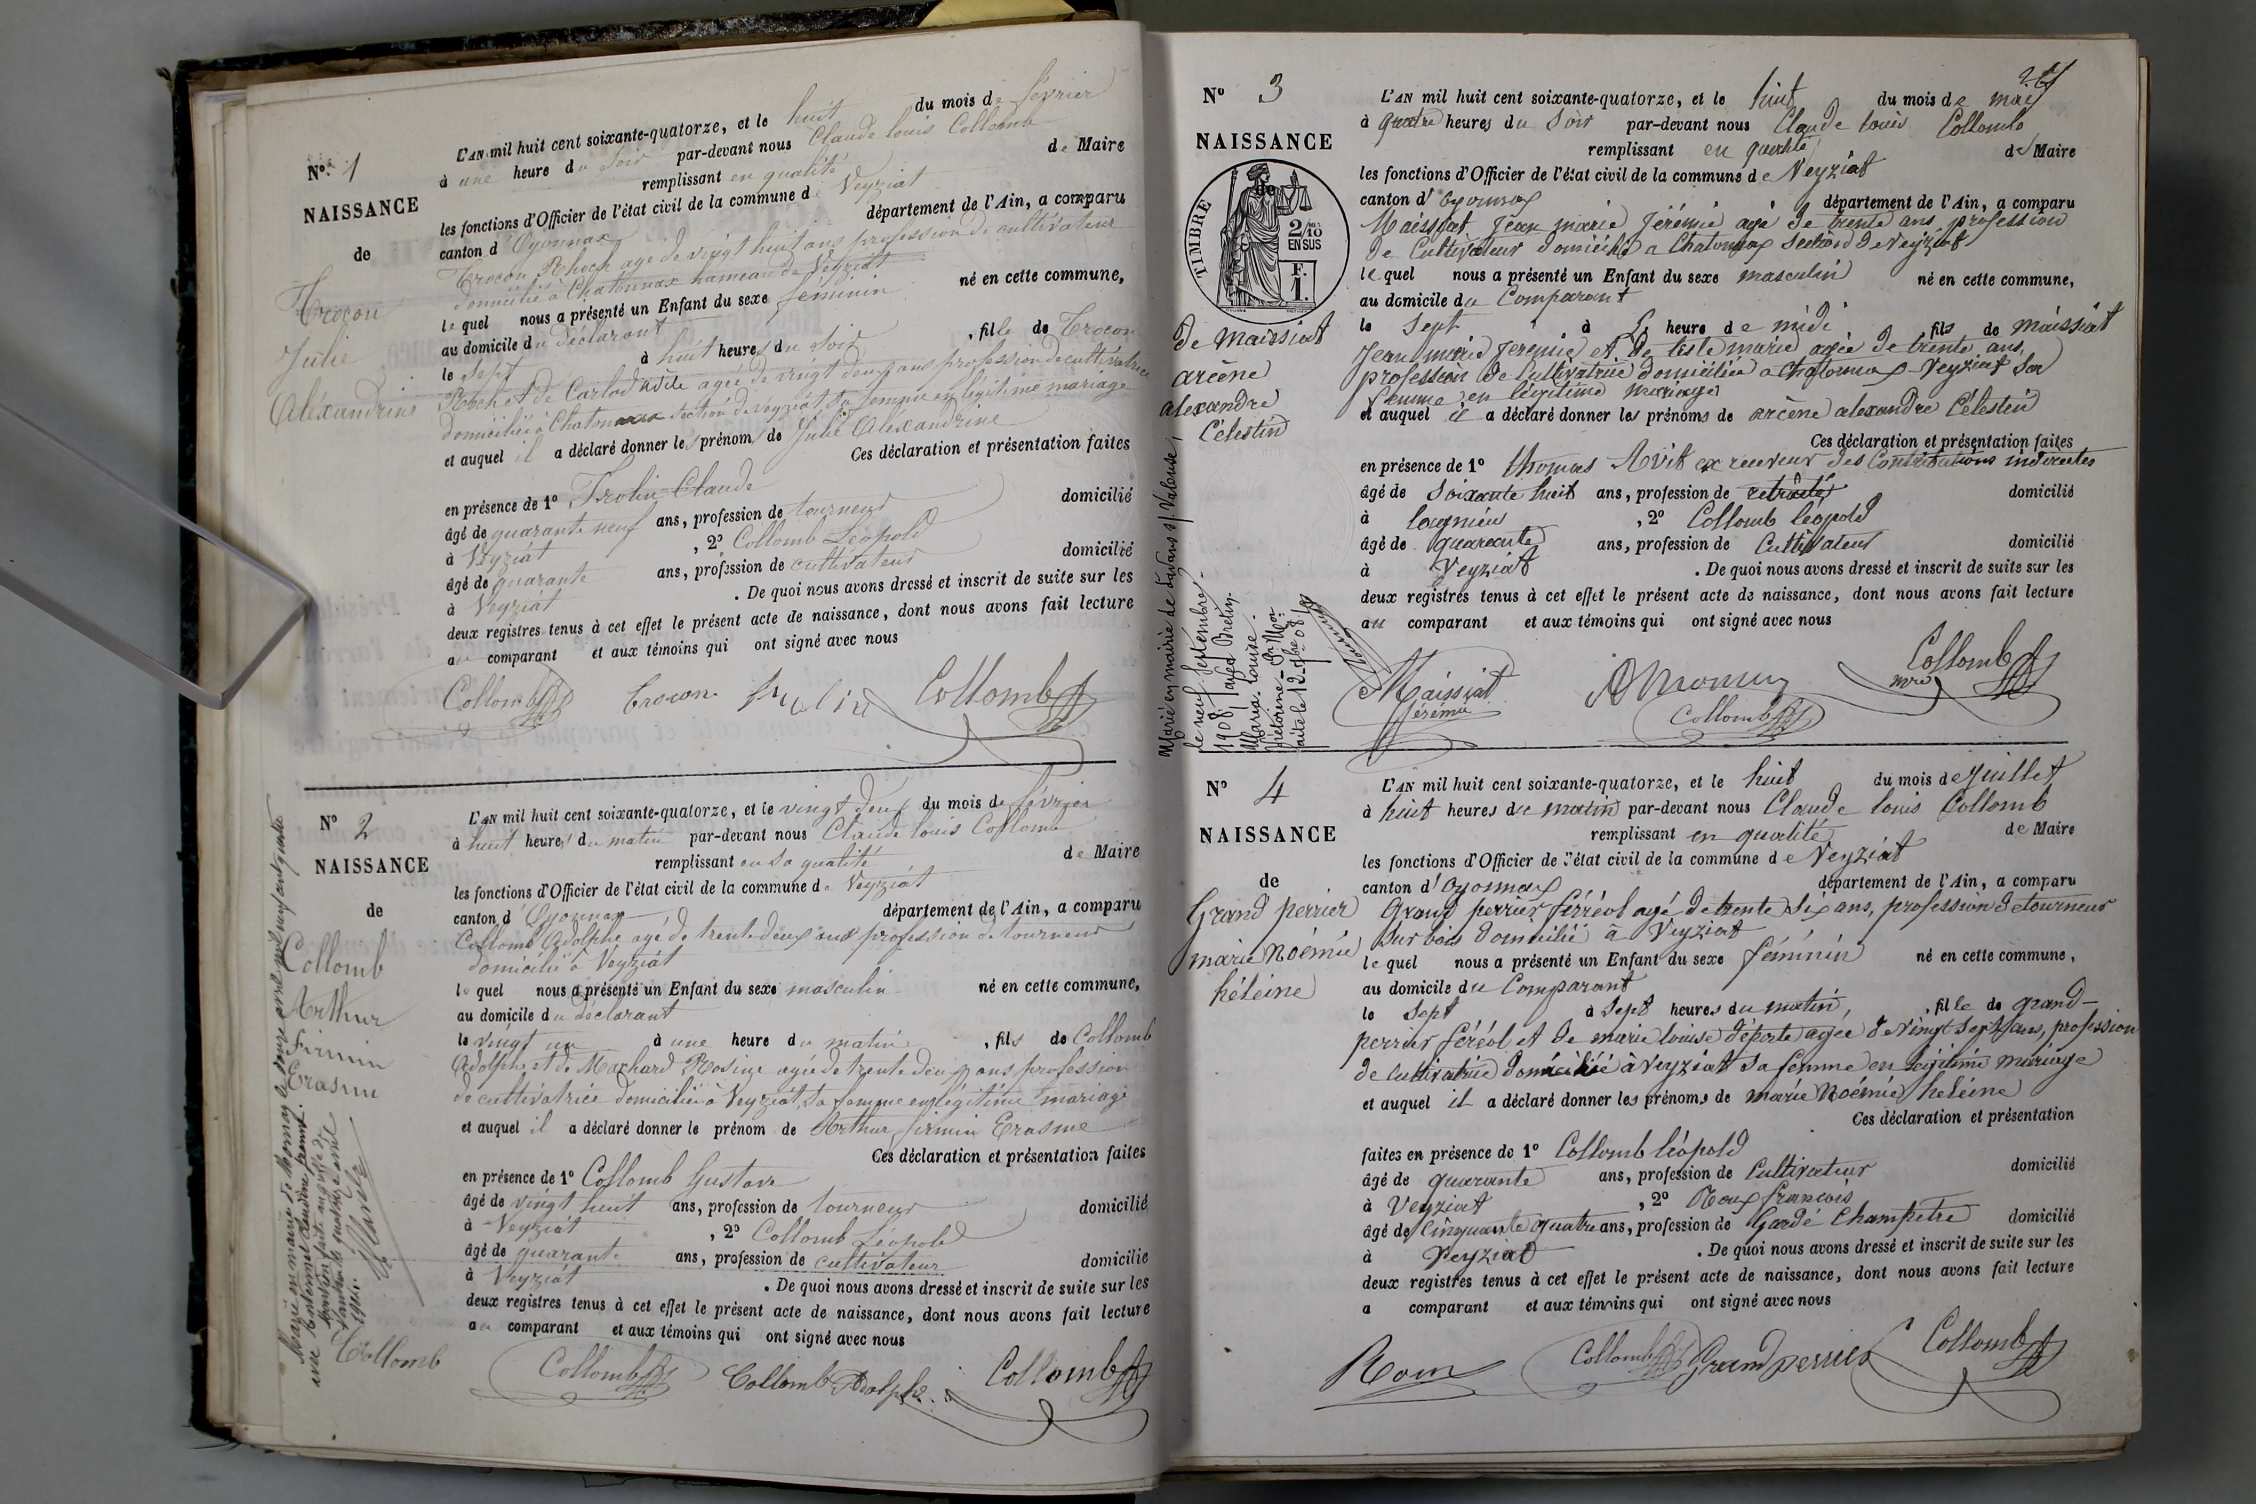 No. 1
NAISSANCE
de
Trocon
Julie
Alexandrine
L'AN mil huit cent soixante-quatorze, et le huit du mois de février
à une heure du soir par-devant nous Claude louis Collomb
remplissant en qualité de Maire
les fonctions d'Officier de l'état civil de la commune de Veyziat
canton d'Oyonnax département de l'Ain, a comparu
Trocon Rhoch agé de vingt huit ans profession de cultivateur
domicilié à Chatonnax hameau de Veyziat
le quel nous a présenté un Enfant du sexe féminin né en cette commune,
au domicile du déclarant
le sept à huit heures du soir, fille de Trocon
Roch et de Carlod agée de vingt deux ans profession de cultivatrice
domiciliée à Chatonnax section de veyziat sa femme en légitime mariage
et auquel il a déclaré donner les prénom de Julie Aléxandrine
Ces déclaration et présentation faites
en présence de 1º Frolin Claude
âgé de quarante neuf ans, profession de tourneur domicilié
à Veyziat, 2º Collomb Léopold
âgé de quarante ans, profession de cultivateur domicilié
à Veyziat. De quoi nous avons dressé et inscrit de suite sur les
deux registres tenus à cet effet le présent acte de naissance, dont nous avons fait lecture
au comparant et aux témoins qui ont signé avec nous
Collomb Trocon Collomb
Nº 2
NAISSANCE
de
Collomb
Arthur
Firmin
Erasme
L'AN mil huit cent soixante-quatorze, et le vingt deux du mois de février
à huit heures du matin par-devant nous Claude louis Collomb
remplissant en sa qualité de Maire
les fonctions d'Officier de l'état civil de la commune de Veyziat
canton d'Oyonnax département de l'Ain, a comparu
Collomb Adolphe agé de trente deux ans profession de tourneur
domicilié à Veyziat
le quel nous a présenté un Enfant du sexe masculin né en cette commune,
au domicile du déclarant
le vingt un à une heure du matin, fils de Collomb
Adolphe et de Machard Rosine agée de trente deux ans profession
de cultivatrice domiciliée à Veyziat, sa femme en légitime mariage
et auquel il a déclaré donner le prénom de Arthur firmin Erasme
Ces déclaration et présentation faites
en présence de 1º Collomb Gustave
âgé de vingt huit ans, profession de tourneur domicilié
à Veyziat, 2º Collomb Léopold
âgé de quarante ans, profession de cultivateur domicilié
à Veyziat. De quoi nous avons dressé et inscrit de suite sur les
deux registres tenus à cet effet le présent acte de naissance, dont nous avons fait lecture
au comparant et aux témoins qui ont signé avec nous
Collomb Collomb Collomb Adolphe Collomb
Nº 3
NAISSANCE
TIMBRE
2/10 EN SUS
F. 1.
de Maissiat
arcène
alexandre
Célestin
Marié en mairie de
le neuf Septembre
1908 avec
Maria Louise
L'AN mil huit cent soixante-quatorze, et le huit du mois de mai
à quatre heures du Soir par-devant nous Claude louis Collomb
remplissant en qualité de Maire
les fonctions d'Officier de l'état civil de la commune de Veyziat
canton d'Oyonnax département de l'Ain, a comparu
Maissiat Jean marie Jérémie agé de trente ans, profession
de Cultivateur domicilié a Chatonnax section de veyziat
le quel nous a présenté un Enfant du sexe masculin né en cette commune,
au domicile du Comparant
le Sept à heure de midi, fils de maissiat
Jean marie Jeremie et de marie agée de trente ans,
profession de Cultivatrice domiciliée a Chatonnax Veyziat sa
femme en légitime mariage
et auquel il a déclaré donner les prénoms de arcène alexandre Célestin
Ces déclaration et présentation faites
en présence de 1º thomas Avit ex receveur des Contributions indirectes
âgé de Soixante huit ans, profession de retraité domicilié
à, 2º Collomb léopold
âgé de quarante ans, profession de Cultivateur domicilié
à Veyziat. De quoi nous avons dressé et inscrit de suite sur les
deux registres tenus à cet effet le présent acte de naissance, dont nous avons fait lecture
au comparant et aux témoins qui ont signé avec nous
Maissiat
Jérémie
Collomb
Collomb
mre
Nº 4
NAISSANCE
de
Grand perrier
marie Noémie
héléine
L'AN mil huit cent soixante-quatorze, et le huit du mois de Juillet
à huit heures du matin par-devant nous Claude louis Collomb
remplissant en qualité de Maire
les fonctions d'Officier de l'état civil de la commune de Veyziat
canton d'Oyonnax département de l'Ain, a comparu
Grand perrier féréol agé de trente six ans, profession de tourneur
sur bois domicilié à Veyziat
le quel nous a présenté un Enfant du sexe féminin né en cette commune,
au domicile du Comparant
le Sept à Sept heures du matin, fille de grand-
perrier féréol et de marie louise déporte agée de vingt Sept ans, profession
de cultivatrice domiciliée à Veyziat sa femme en légitime mariage
et auquel il a déclaré donner les prénoms de marie Noémie héléine
Ces déclaration et présentation
faites en présence de 1º Collomb léopold
âgé de quarante ans, profession de Cultivateur domicilié
à Veyziat, 2º Roux françois
âgé de Cinquante quatre ans, profession de Garde Champetre domicilié
à Veyziat. De quoi nous avons dressé et inscrit de suite sur les
deux registres tenus à cet effet le présent acte de naissance, dont nous avons fait lecture
a comparant et aux témoins qui ont signé avec nous
Collomb Grand perrier Collomb